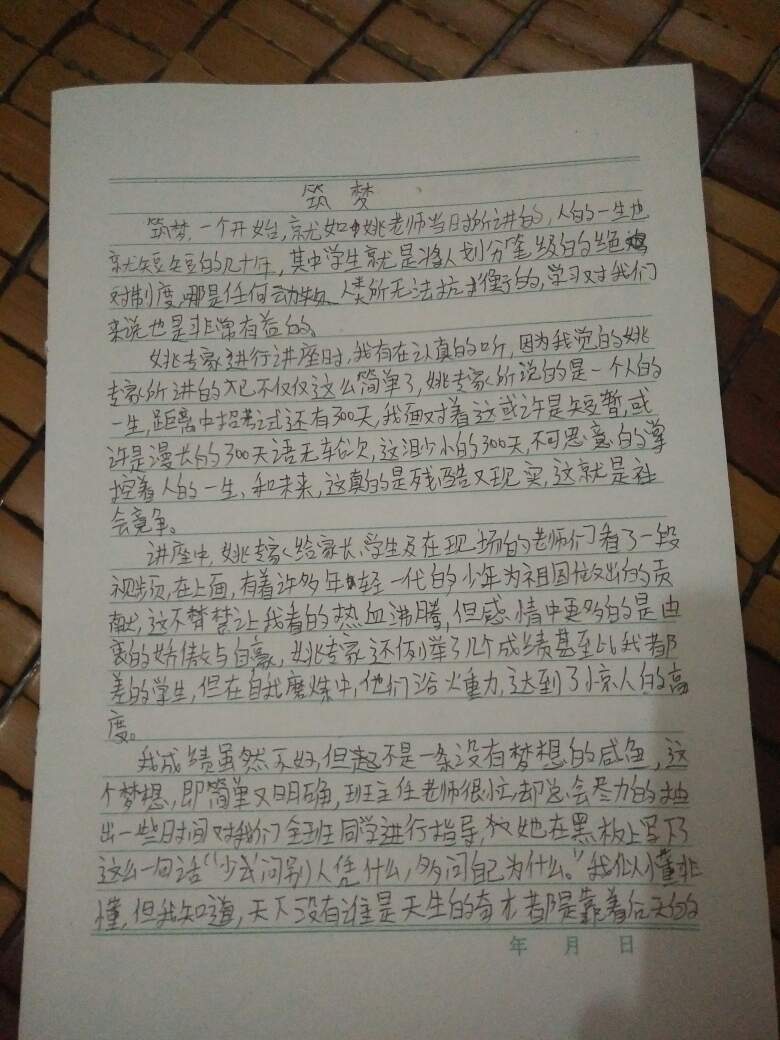 筑梦
筑梦,一个开始,就如姚老师当日所讲的,人的一生也
就短短的几十年,其中学生就是将人划分等级的绝
对制度,哪是任何动物、人类所无法抗衡的,学习对我们
来说也是非常有益的。
姚专家进行讲座时,我有在认真的听,因为我觉的姚
专家所讲的已不仅仅这么简单了,姚专家所说的是一个人的
一生,距离中招考试还有300天,我面对着这或许是短暂,或
许是漫长的300天语无轮次,这渺小的300天,不可思意的掌
控着人的一生、和未来,这真的是残酷又现实,这就是社
会竞争。
讲座中,姚专家给家长、学生及在现场的老师们看了一段
视频,在上面,有着许多年轻一代的少年为祖国做出的贡
献,这不禁让我看的热血沸腾,但感情中更多的是由
衷的娇傲与自豪,姚专家还例举了几个成绩甚至比我都
差的学生,但在自我磨炼中,他们浴火重力,达到了惊人的高
度。
我成绩虽然不好,但起不是一条没有梦想的咸鱼,这
个梦想,即简单又明确,班主任老师很忙,却总会尽力的抽
出一些时间对我们全班同学进行指导,她在黑板上写下了
这么一句话“少问别人凭什么,多问自己为什么。”我似懂非
懂,但我知道,天下没有谁是天生的奇才都是靠着后天的
年 月 日